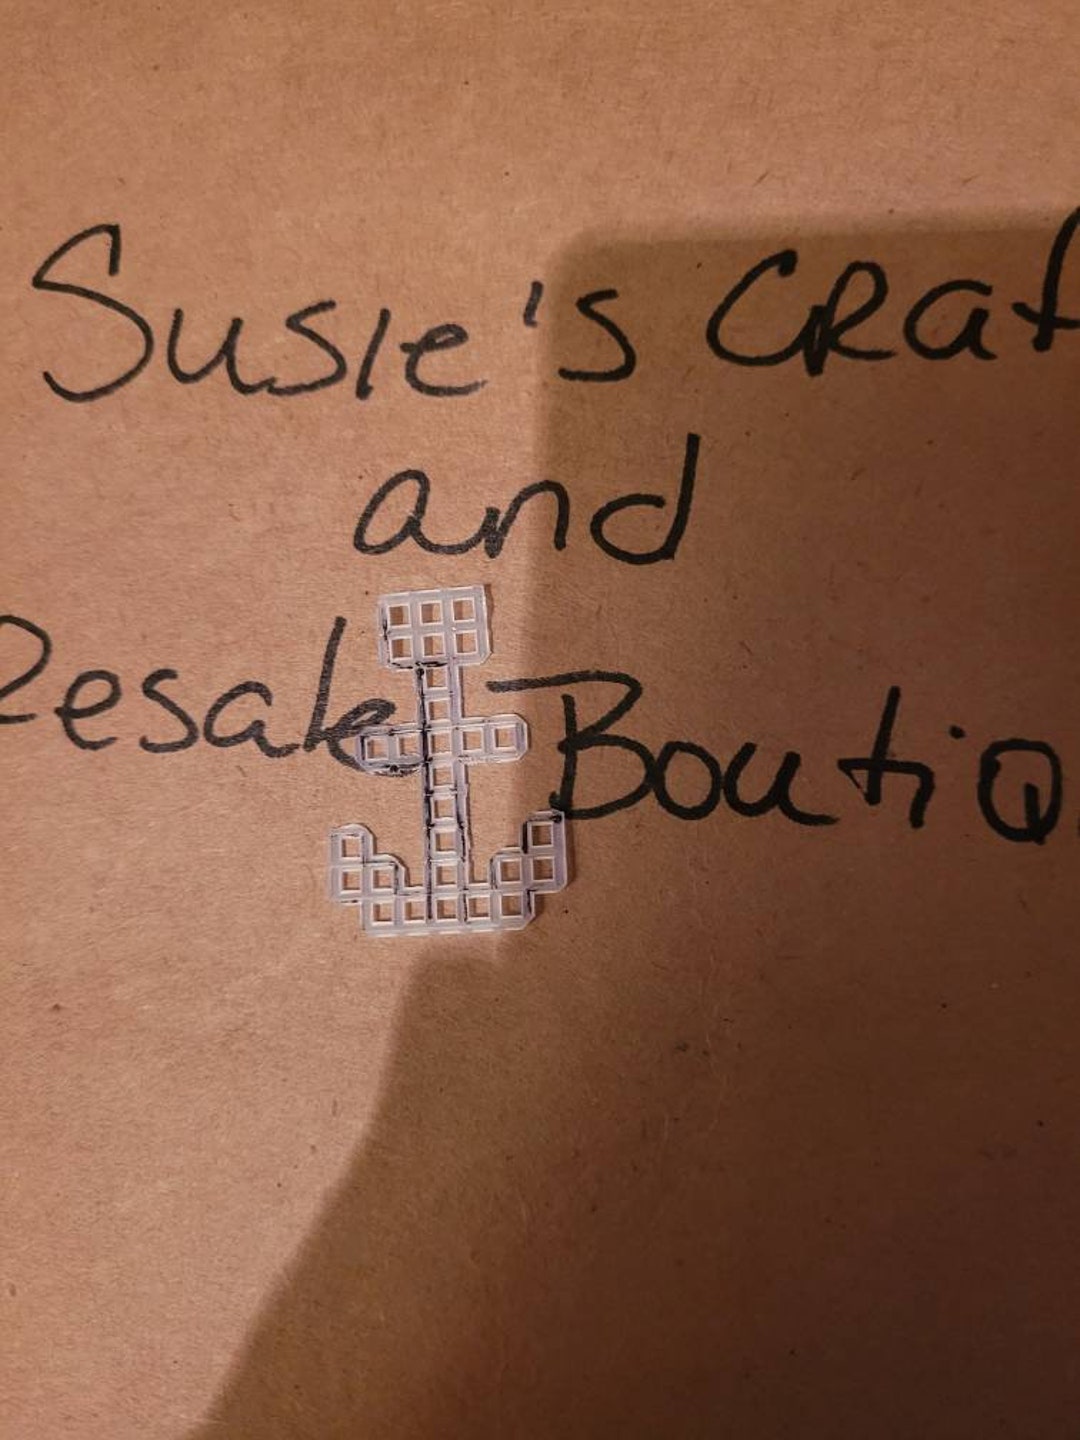 Susie's CRaf
and
Resale Boutiq